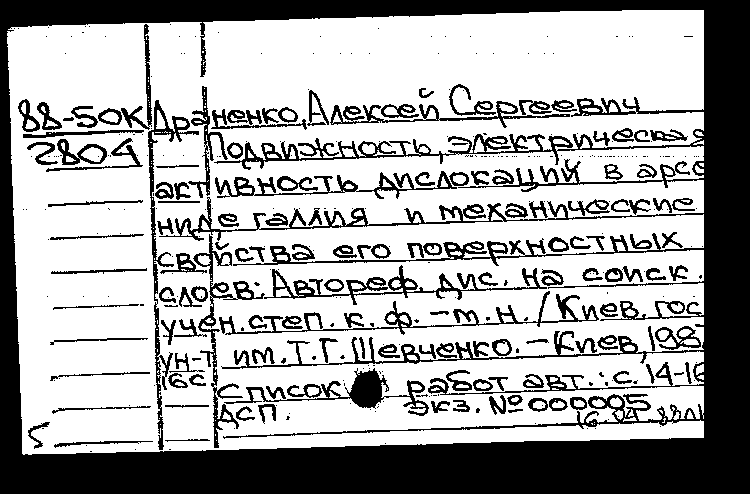 88-50К Драненко, Алексей Сергеевич
2804 Подвижность, электрическая
активность дислокаций в арсе
ниде галлия и механические
свойства его поверхностных
слоев: Автореф. дис. на соиск.
учен. степ. к. ф. - м. н. / Киев. гос
ун-т им. Т. Г. Шевченко. - Киев, 1987
16с
Список работ авт.: с. 14-16
ДСП. Экз. № 000005
16. 04 88